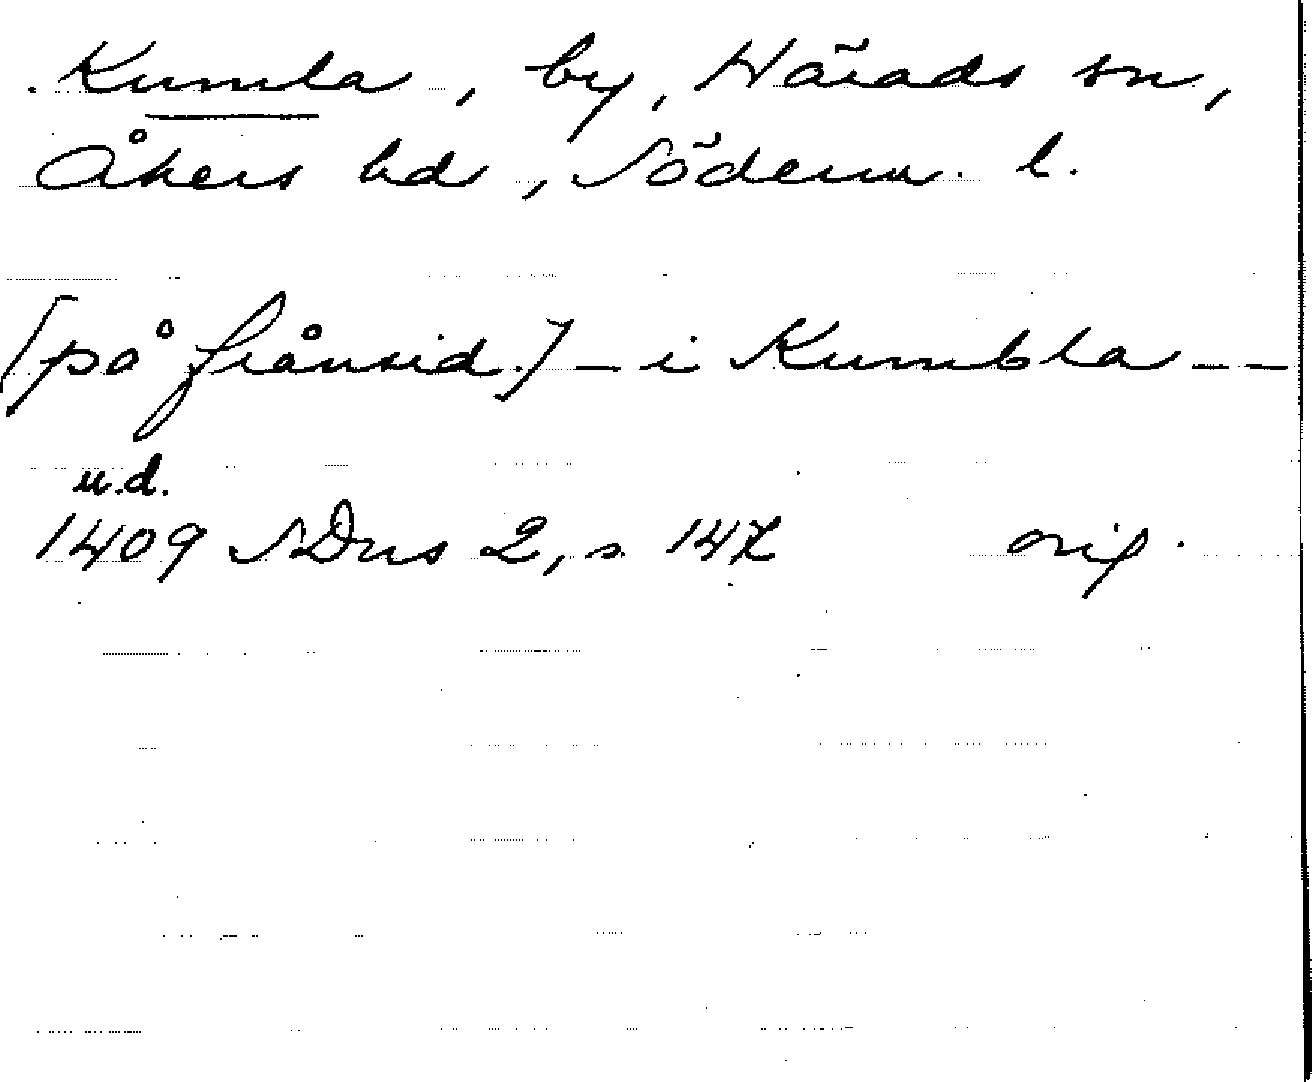 Kumla, by, Härads sn,
Åkers hd, Söderm. l.
[på frånsid.] – i Kumbla – –
u.d.
1409 SDns 2, s. 147 orig.